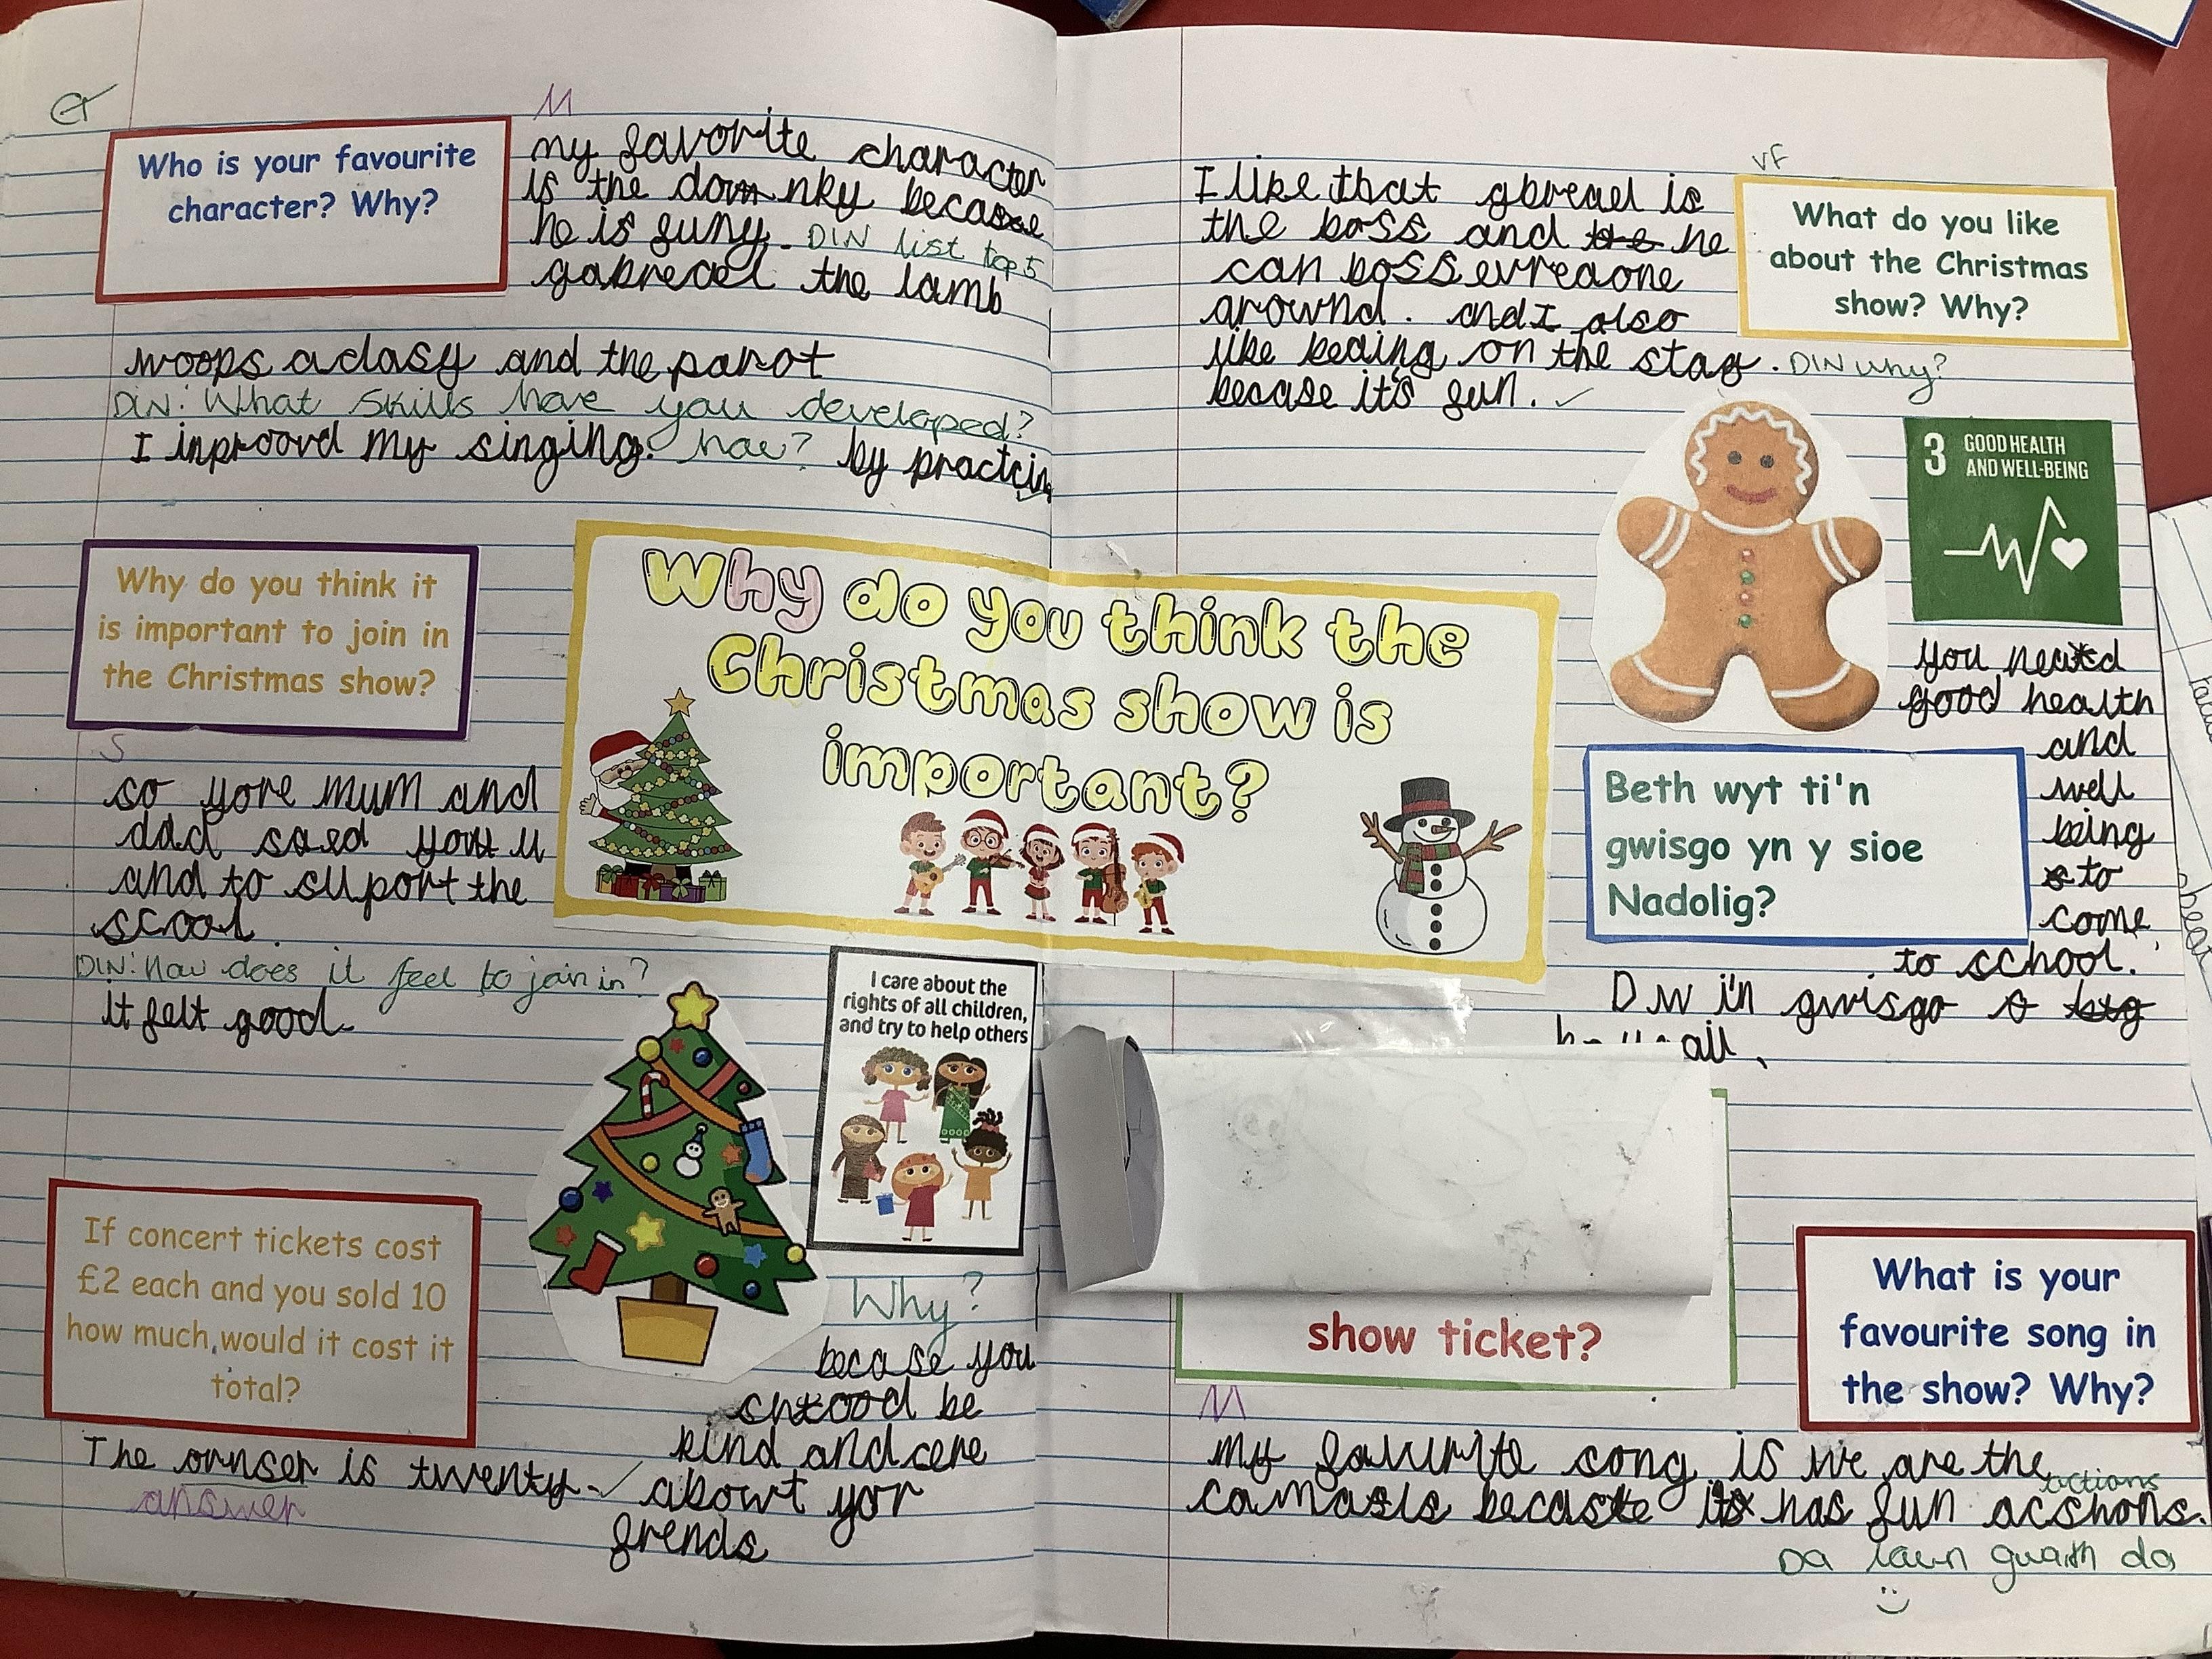 Who is your favourite
character? Why?
M
my favorite character
is the donky because
he is funy. DIN list top 5
gabreael the lamb
woops adasy and the parot
DIN: What skills have you developed?
I inproovd my singing. how? by practcin
Why do you think it
is important to join in
the Christmas show?
S
so yore mum and
dad saed you
and to suport the
scrool.
DIN: How does it feel to join in?
it felt good.
If concert tickets cost
£2 each and you sold 10
how much, would it cost it
total?
The ornser is twenty.
answer
Why do you think the
Christmas show is
important?
I care about the
rights of all children,
and try to help others
Why?
becase you
be
kind and cere
abowt yor
frends
VF
I like that gbreael is
the boss and the he
can boss evreaone
arownd. and I also
like beaing on the stag. DIN why?
becase it's fun.
What do you like
about the Christmas
show? Why?
3 GOOD HEALTH
AND WELL-BEING
you
good health
and
well
being
to
come
to school.
Beth wyt ti'n
gwisgo yn y sioe
Nadolig?
Dw i'n gwisgo
show ticket?
What is your
favourite song in
the show? Why?
M
my favurite song is we are the
actions
camasls becaste its has fun acshons.
Da iawn gwaith da